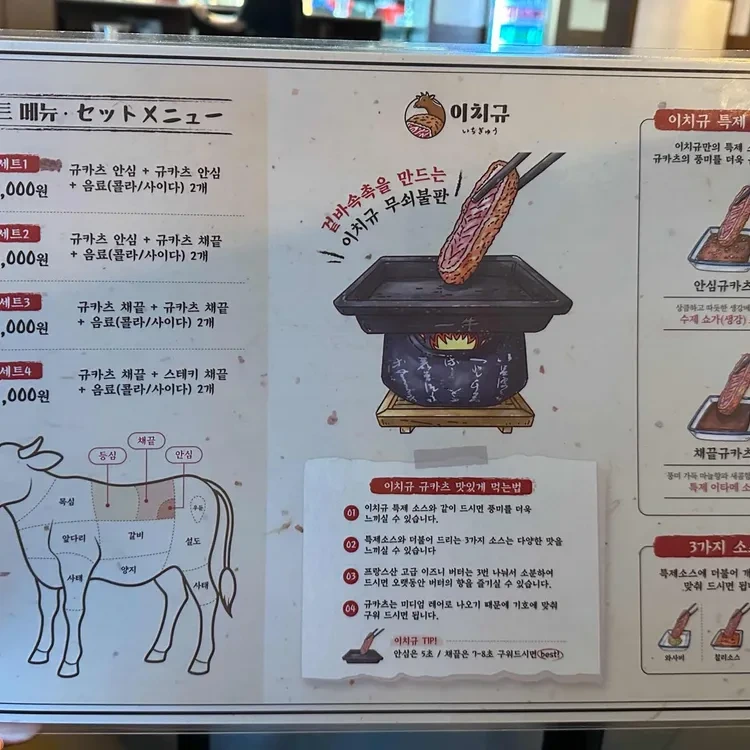 트 메뉴·セットメニュー
세트1
,000원
규카츠 안심 + 규카츠 안심
+ 음료(콜라/사이다) 2개
세트2
,000원
규카츠 안심 + 규카츠 채끝
+ 음료(콜라/사이다) 2개
세트3
,000원
규카츠 채끝 + 규카츠 채끝
+ 음료(콜라/사이다) 2개
세트4
,000원
규카츠 채끝 + 스테키 채끝
+ 음료(콜라/사이다) 2개
등심
채끝
안심
목심
우둔
앞다리
갈비
설도
양지
사태
사태
이치규
いちぎゅう
겉바속촉을 만드는
이치규 무쇠불판
一牛
이치규 규카츠 맛있게 먹는법
01 이치규 특제 소스와 같이 드시면 풍미를 더욱
느끼실 수 있습니다.
02 특제소스와 더불어 드리는 3가지 소스는 다양한 맛을
느끼실 수 있습니다
03 프랑스산 고급 이즈니 버터는 3번 나눠서 소분하여
드시면 오랫동안 버터의 향을 즐기실 수 있습니다.
04 규카츠는 미디엄 레어로 나오기 때문에 기호에 맞춰
구워 드시면 됩니다.
이치규 TIP!
안심은 5초 / 채끝은 7-8초 구워드시면 best!
이치규 특제
이치규만의 특제 소
규카츠의 풍미를 더욱
안심규카츠
상큼하고 따뜻한 생강에
수제 쇼가(생강)
채끝규카츠
풍미 가득 마늘향과 새콤함
특제 어타메 소
3가지 소
특제소스에 더불어 개
맞춰 드시면 됩니
와사비
칠리소스